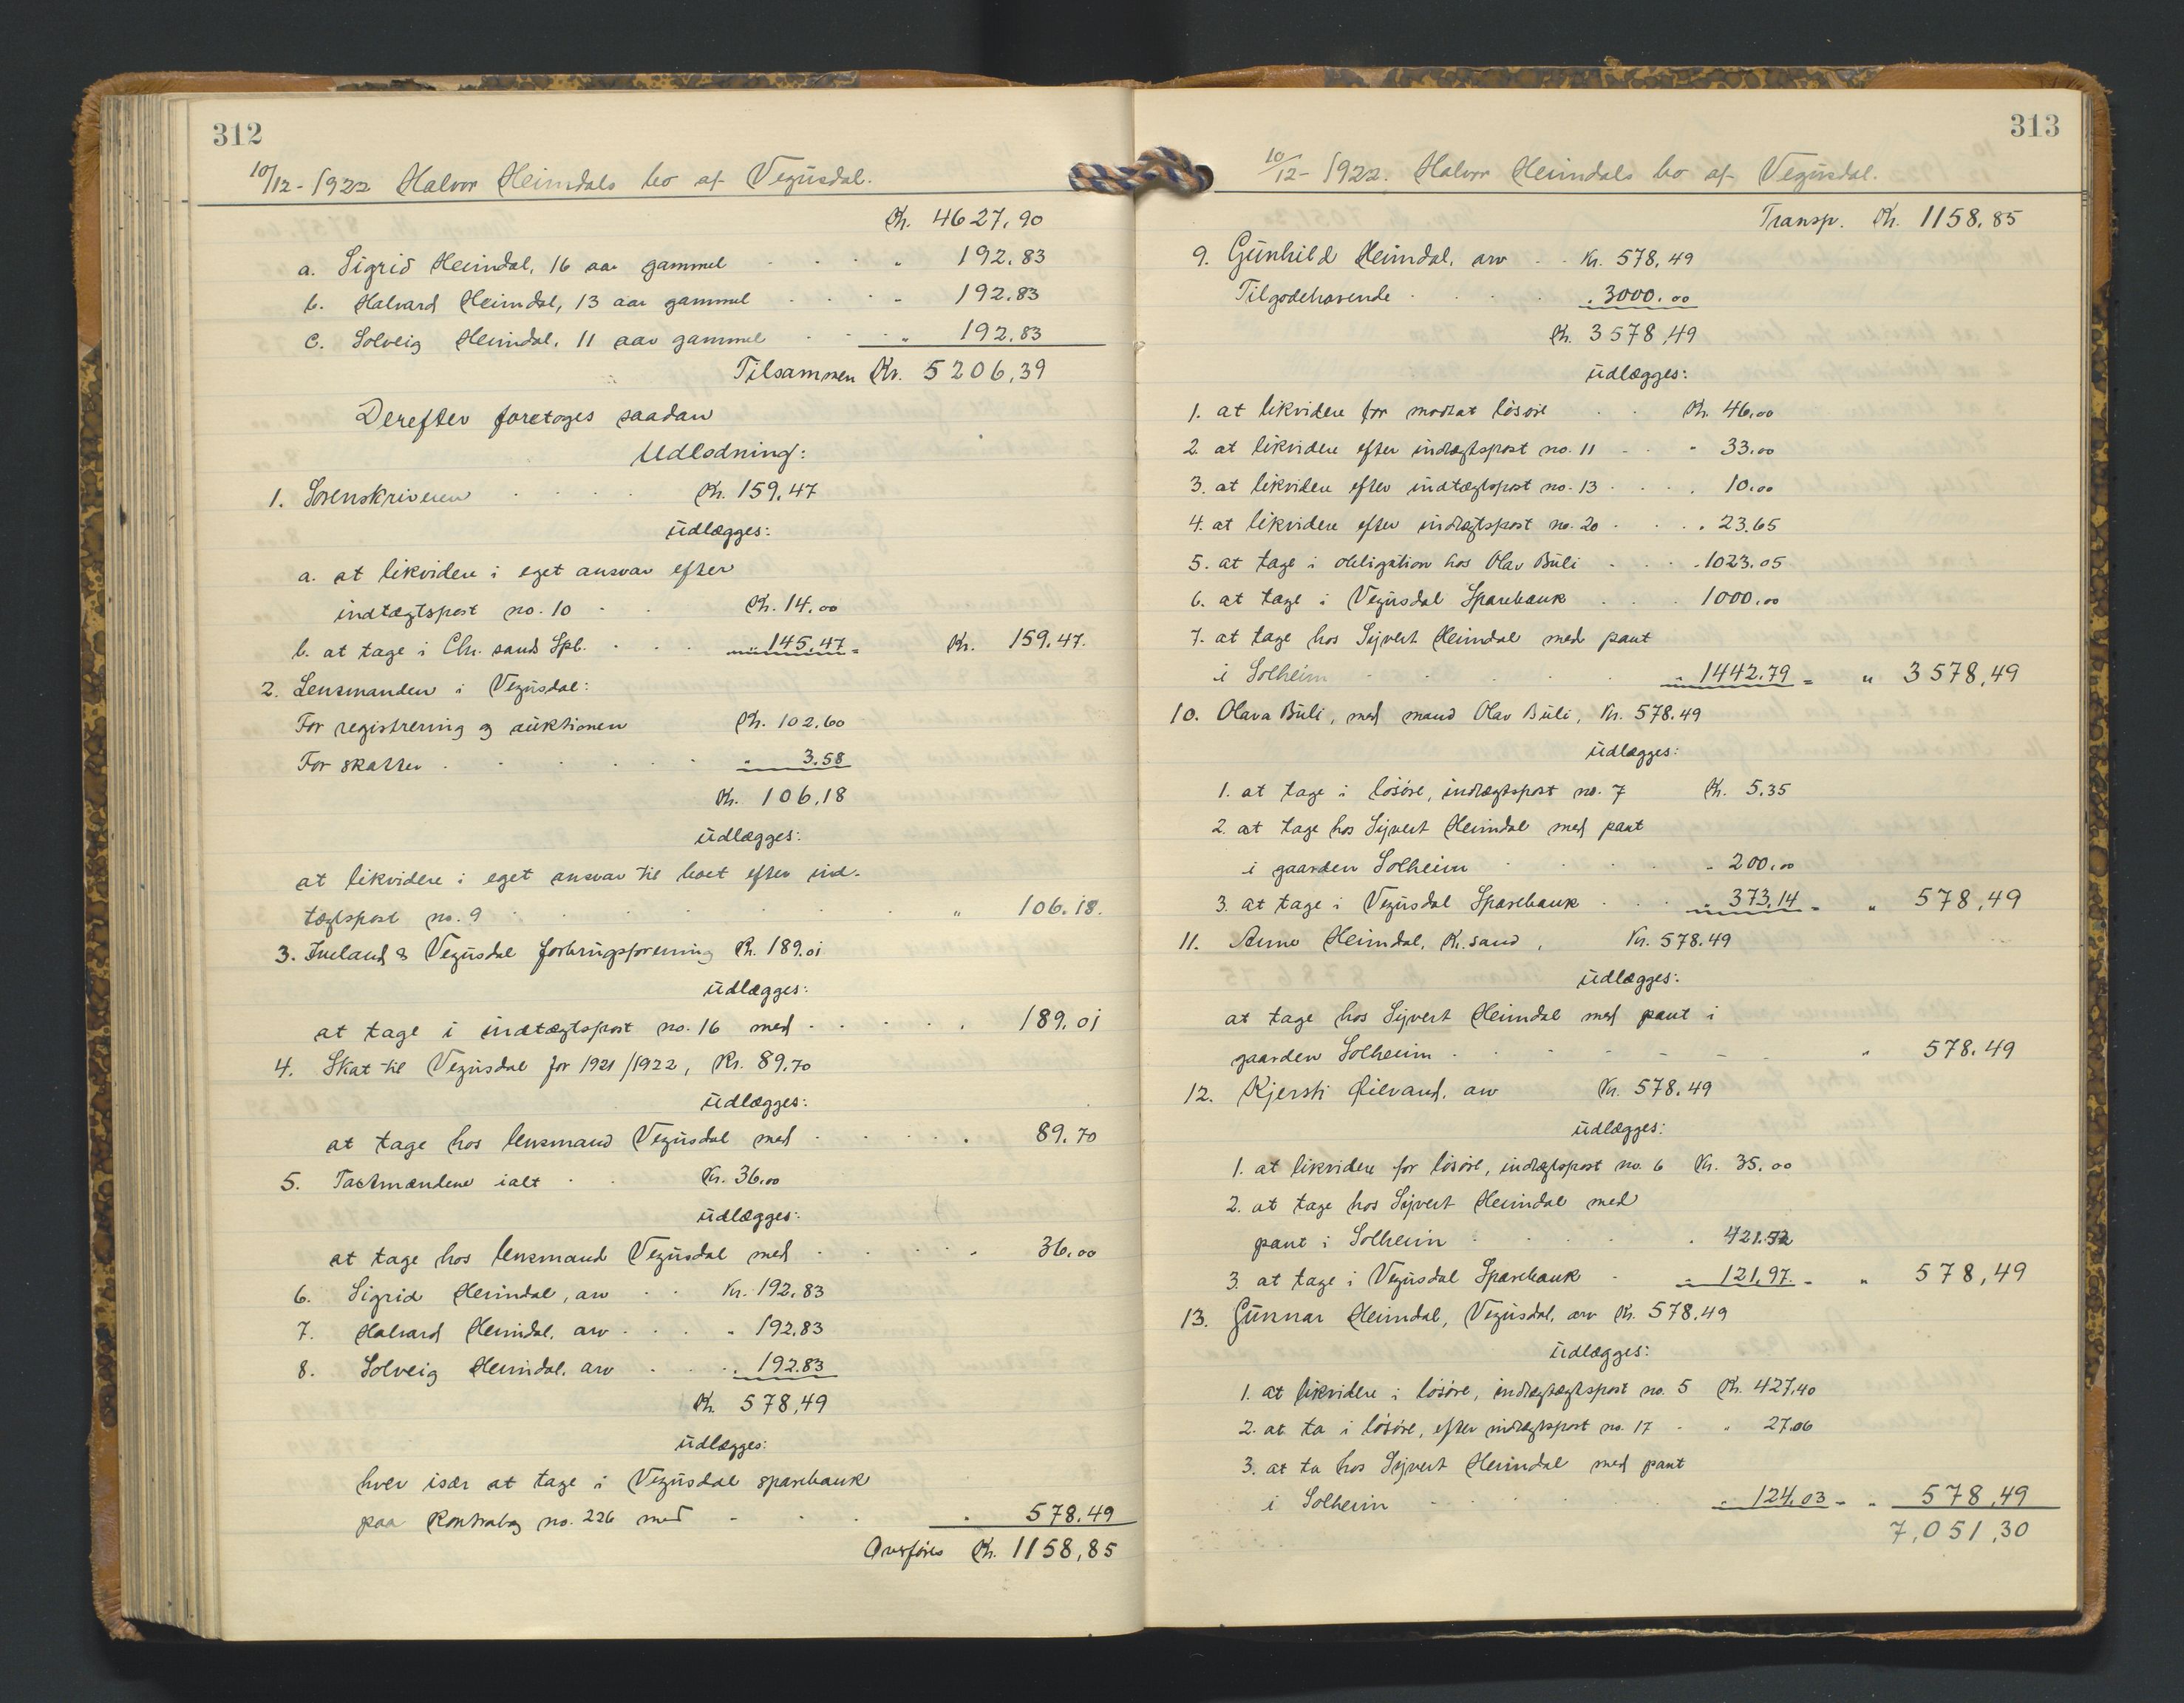 312
10/12-1922 Halvor Heimdals bo af Vegusdal.
Kr. 4627,90
a. Sigrid Heimdal, 16 aar gammel . . . " 192.83
b. Halvard Heimdal, 13 aar gammel . . . . " 192.83
c. Solveig Heimdal, 11 aar gammel . . . " 192.83
Tilsammen Kr. 5206,39
Derefter foretoges saadan
Udlodning:
1. Sorenskriveren . . . . Kr. 159,47
udlægges:
a. at likvidere i eget ansvar efter
indtægtspost no. 10 . . Kr. 14.00
b. at tage i Chr. sands Spb. . . . " 145.47 = Kr. 159.47.
2. Lensmanden i Vegusdal:
For registrering og auktionen Kr. 102,60
For skatter . . . . . . " 3.58
Kr. 106,18
udlægges:
at likvidere i eget ansvar til boet efter ind-
tægtspost no. 9 . . . . . . " 106.18.
3. Iveland & Vegusdal forbrugsforening Kr. 189.01
udlægges:
at tage i indtægtspost no. 16 med . . . . . . 189.01
4. Skat til Vegusdal for 1921/1922, Kr. 89.70
udlægges:
at tage hos lensmand Vegusdal med . . . . . . 89.70
5. Takstmændene ialt . . Kr. 36.00
udlægges:
at tage hos lensmand Vegusdal med . . . . . . 36.00
6. Sigrid Heimdal, arv . . Kr. 192,83
7. Halvard Heimdal, arv . . . . " 192,83
8. Solveig Heimdal, arv . . . . 192.83
Kr. 578,49
udlægges:
hver især at tage i Vegusdal sparebank
paa Kontrabog no. 226 med - . . . " 578.49
Overføres Kr. 1158,85
313
10/12-1922. Halvor Heimdals bo af Vegusdal.
Transp. Kr. 1158.85
9. Gunhild Heimdal, arv . . Kr. 578,49
Tilgodehavende . . . . " 3000.00
Kr. 3578,49
udlægges:
1. at likvidere for mottat løsøre . . Kr. 46.00
2. at likvidere efter indtægtspost no. 11 . . " 33.00
3. at likvidere efter indtægtspost no. 13 . . . . 10.00
4. at likvidere efter indtægtspost no. 20 . . . . 23.65
5. at tage i obligation hos Olav Buli . . . . 1023.05
6. at tage i Vegusdal Sparebank . . . 1000.00
7. at tage hos Sijvert Heimdal med pant
i Solheim . . . . . " 1442.79 = " 3578,49
10. Olava Buli, med mand Olav Buli, Kr. 578.49
udlægges:
1. at tage i løsøre, indtægtspost no. 7 Kr. 5.35
2. at tage hos Sijvert Heimdal med pant
i gaarden Solheim . . . . " 200.00
3. at tage i Vegusdal Sparebank . . . " 373,14 = " 578,49
11. Anne Heimdal, K. sand, Kr. 578.49
udlægges:
at tage hos Sijvert Heimdal med pant i
gaarden Solheim . . . . . . . " 578.49
12. Kjersti arv Kr. 578.49
udlægges:
1. at likvidere for løsøre, indtægtspost no. 6 Kr. 35.00
2. at tage hos Sijvert Heimdal med
pant i Solheim . . . . . 421.52
3. at tage i Vegusdal Sparebank . " 121,97 = " 578,49
13. Gunnar Heimdal, Vegusdal, arv Kr. 578.49
udlægges:
1. at likvidere i løsøre, indtægtægtspost no. 5 Kr. 427,40
2. at ta i løsøre, efter indtægtspost no. 17 - " 27.06
3. at ta hos Sijvert Heimdal med pant
i Solheim . . . . . " 124,03 = " 578,49
7,051,30